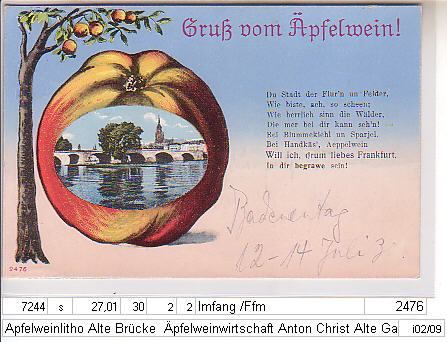 Gruß vom Äpfelwein!
Du Stadt der Flur'n un Felder,
Wie biste, ach, so scheen;
Wie herrlich sinn die Wälder,
Die mer bei dir kann seh'n! —
Bei Blummekiehl un Sparjel,
Bei Handkäs', Aeppelwein
Will ich, drum liebes Frankfurt,
In dir begrawe sein!
12-14 Juli 3
2476
7244 s 27,01 30 2 2 Imfang /Ffm 2476
Apfelweinlitho Alte Brücke Äpfelweinwirtschaft Anton Christ Alte Ga i02/09